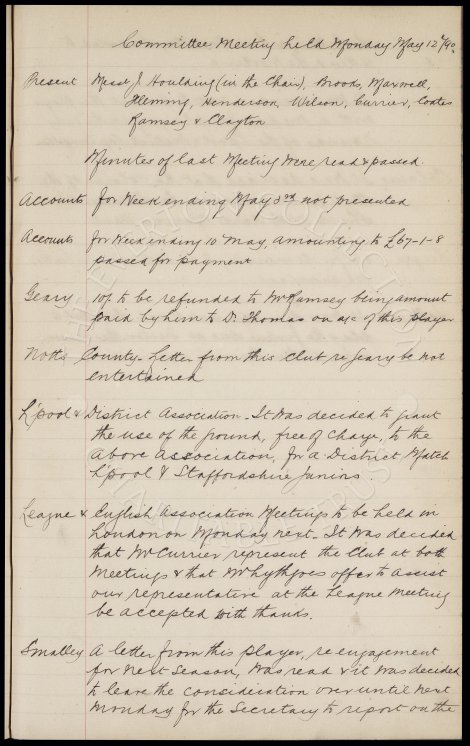 Committee Meeting held Monday May 12th/90.
Present Messrs J. Houlding (in the Chair), Broods, Maxwell,
Fleming, Henderson, Wilson, Currier, Coates
Ramsey & Clayton
Minutes of last Meeting were read & passed.
Accounts for Week ending May 3rd not presented
Accounts for Week ending 10 May, amounting to £67-1-8
passed for payment
Geary 10/ to be refunded to Mr Ramsey being amount
paid by him to Dr. Thomas on a/c of this player
Notts County - Letter from this club re Geary be not
entertained
L'pool & District Association - It was decided to grant
the use of the ground, free of charge, to the
above association, for a District Match
L'pool V Staffordshire Juniors.
League & English Association Meetings to be held in
London on Monday next - It was decided
that Mr Currier represent the Club at both
Meetings & that Mr Lythgoes offer to assist
our representative at the League Meeting
be accepted with thanks.
Smalley A letter from this player, re engagement
for next Season, was read & it was decided
to leave the consideration over until next
Monday for the Secretary to report on the
THE EVERTON COLLECTION